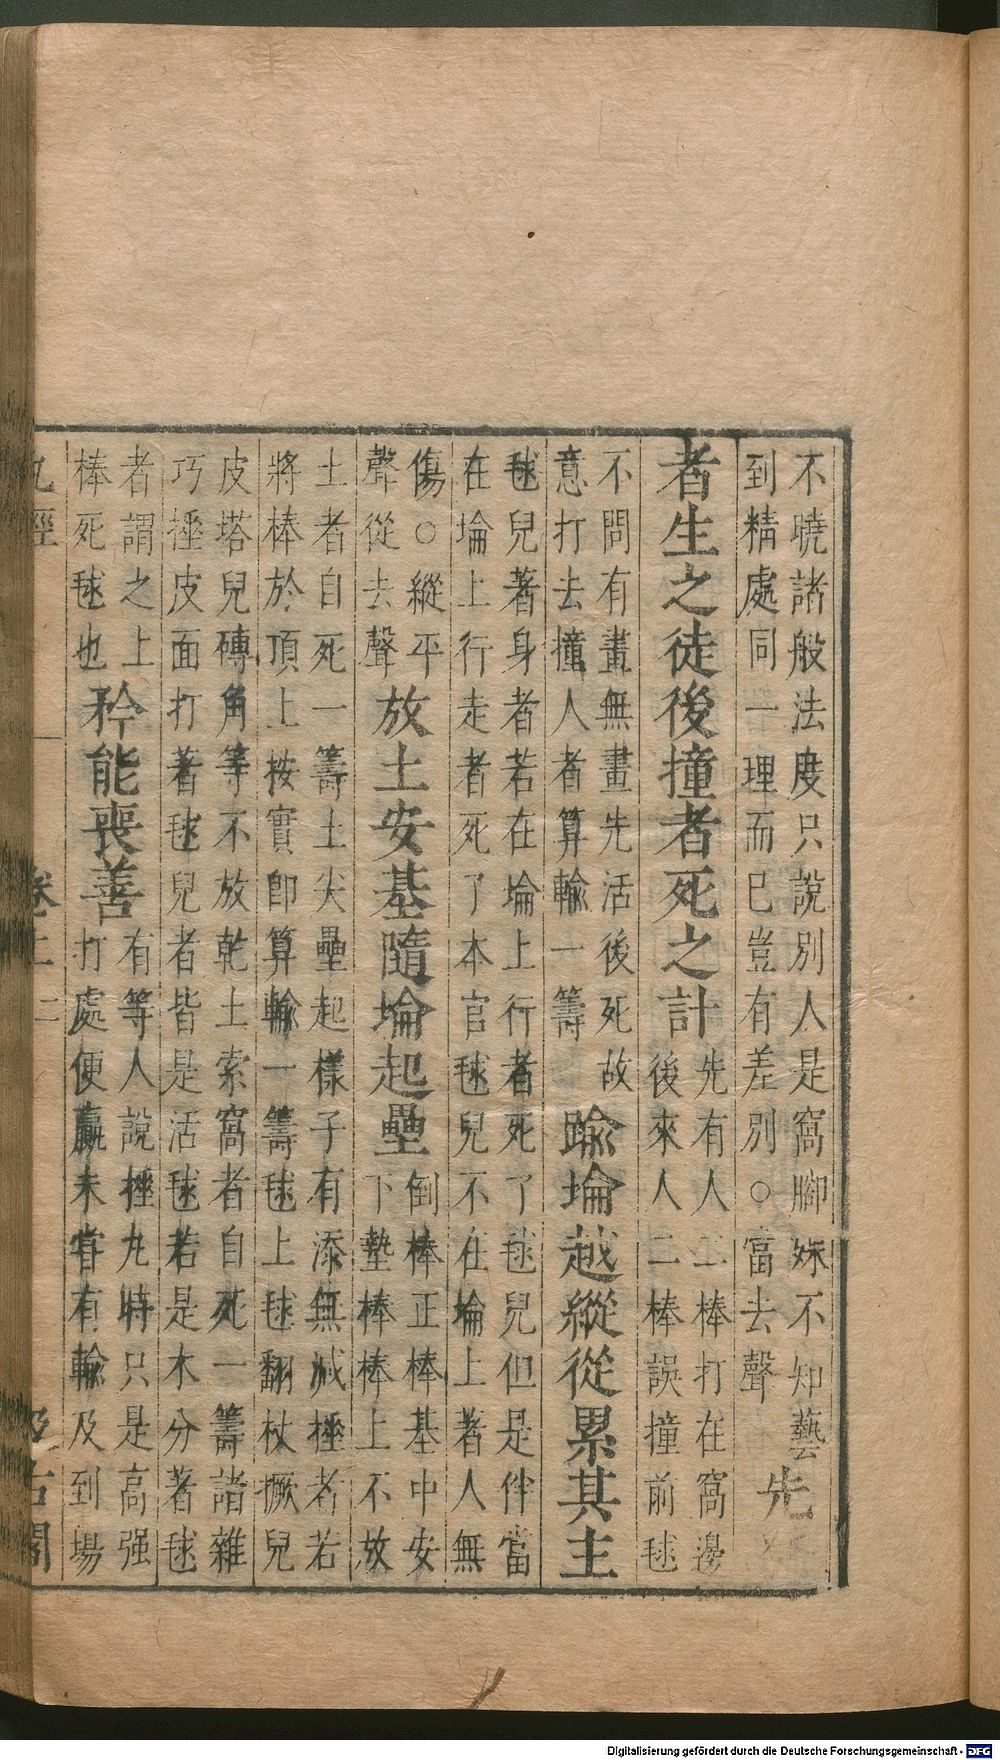 不曉諸般法度只說別人是窩腳姝不知藝
到精處同一理而已豈有差別○當去聲
先
者生之徒後撞者死之計
先有人二棒打在窩邊
後來人二棒誤撞前毬
不問有畫無畫先活後死故
意打去撞人者算輸一籌
踰埨越縱從累其主
毬兒著身者若在埨上行者死了毬兒但是伴當
在埨上行走者死了本官毬兒不在埨上著人無
傷○縱平
聲從去聲
放土安基隨埨起壘
倒棒正棒基中安
下墊棒棒上不放
土者自死一籌土尖壘起樣子有添無減捶者若
將棒於頂上按實即算輸一籌毬上毬翻杖撅兒
皮塔兒磚角等不放乾土索窩者自死一籌諸雜
巧捶皮面打著毬兒者皆是活毬若是木分著毬
者謂之上
棒死毬也
矜能喪善
有等人說捶丸時只是高强
打處便贏未嘗有輸及到場
丸經 卷上 二 汲古閣
Digitalisierung gefördert durch die Deutsche Forschungsgemeinschaft - DFG